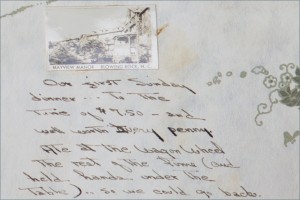 MAYVIEW MANOR - BLOWING ROCK, N. C.
Our first Sunday
dinner... to the
Tune of $7.50 - and
well worth Every penny.
Ate at the Wagon Wheel
The rest of the time (and
held hands under the
Table).. so we could go back.